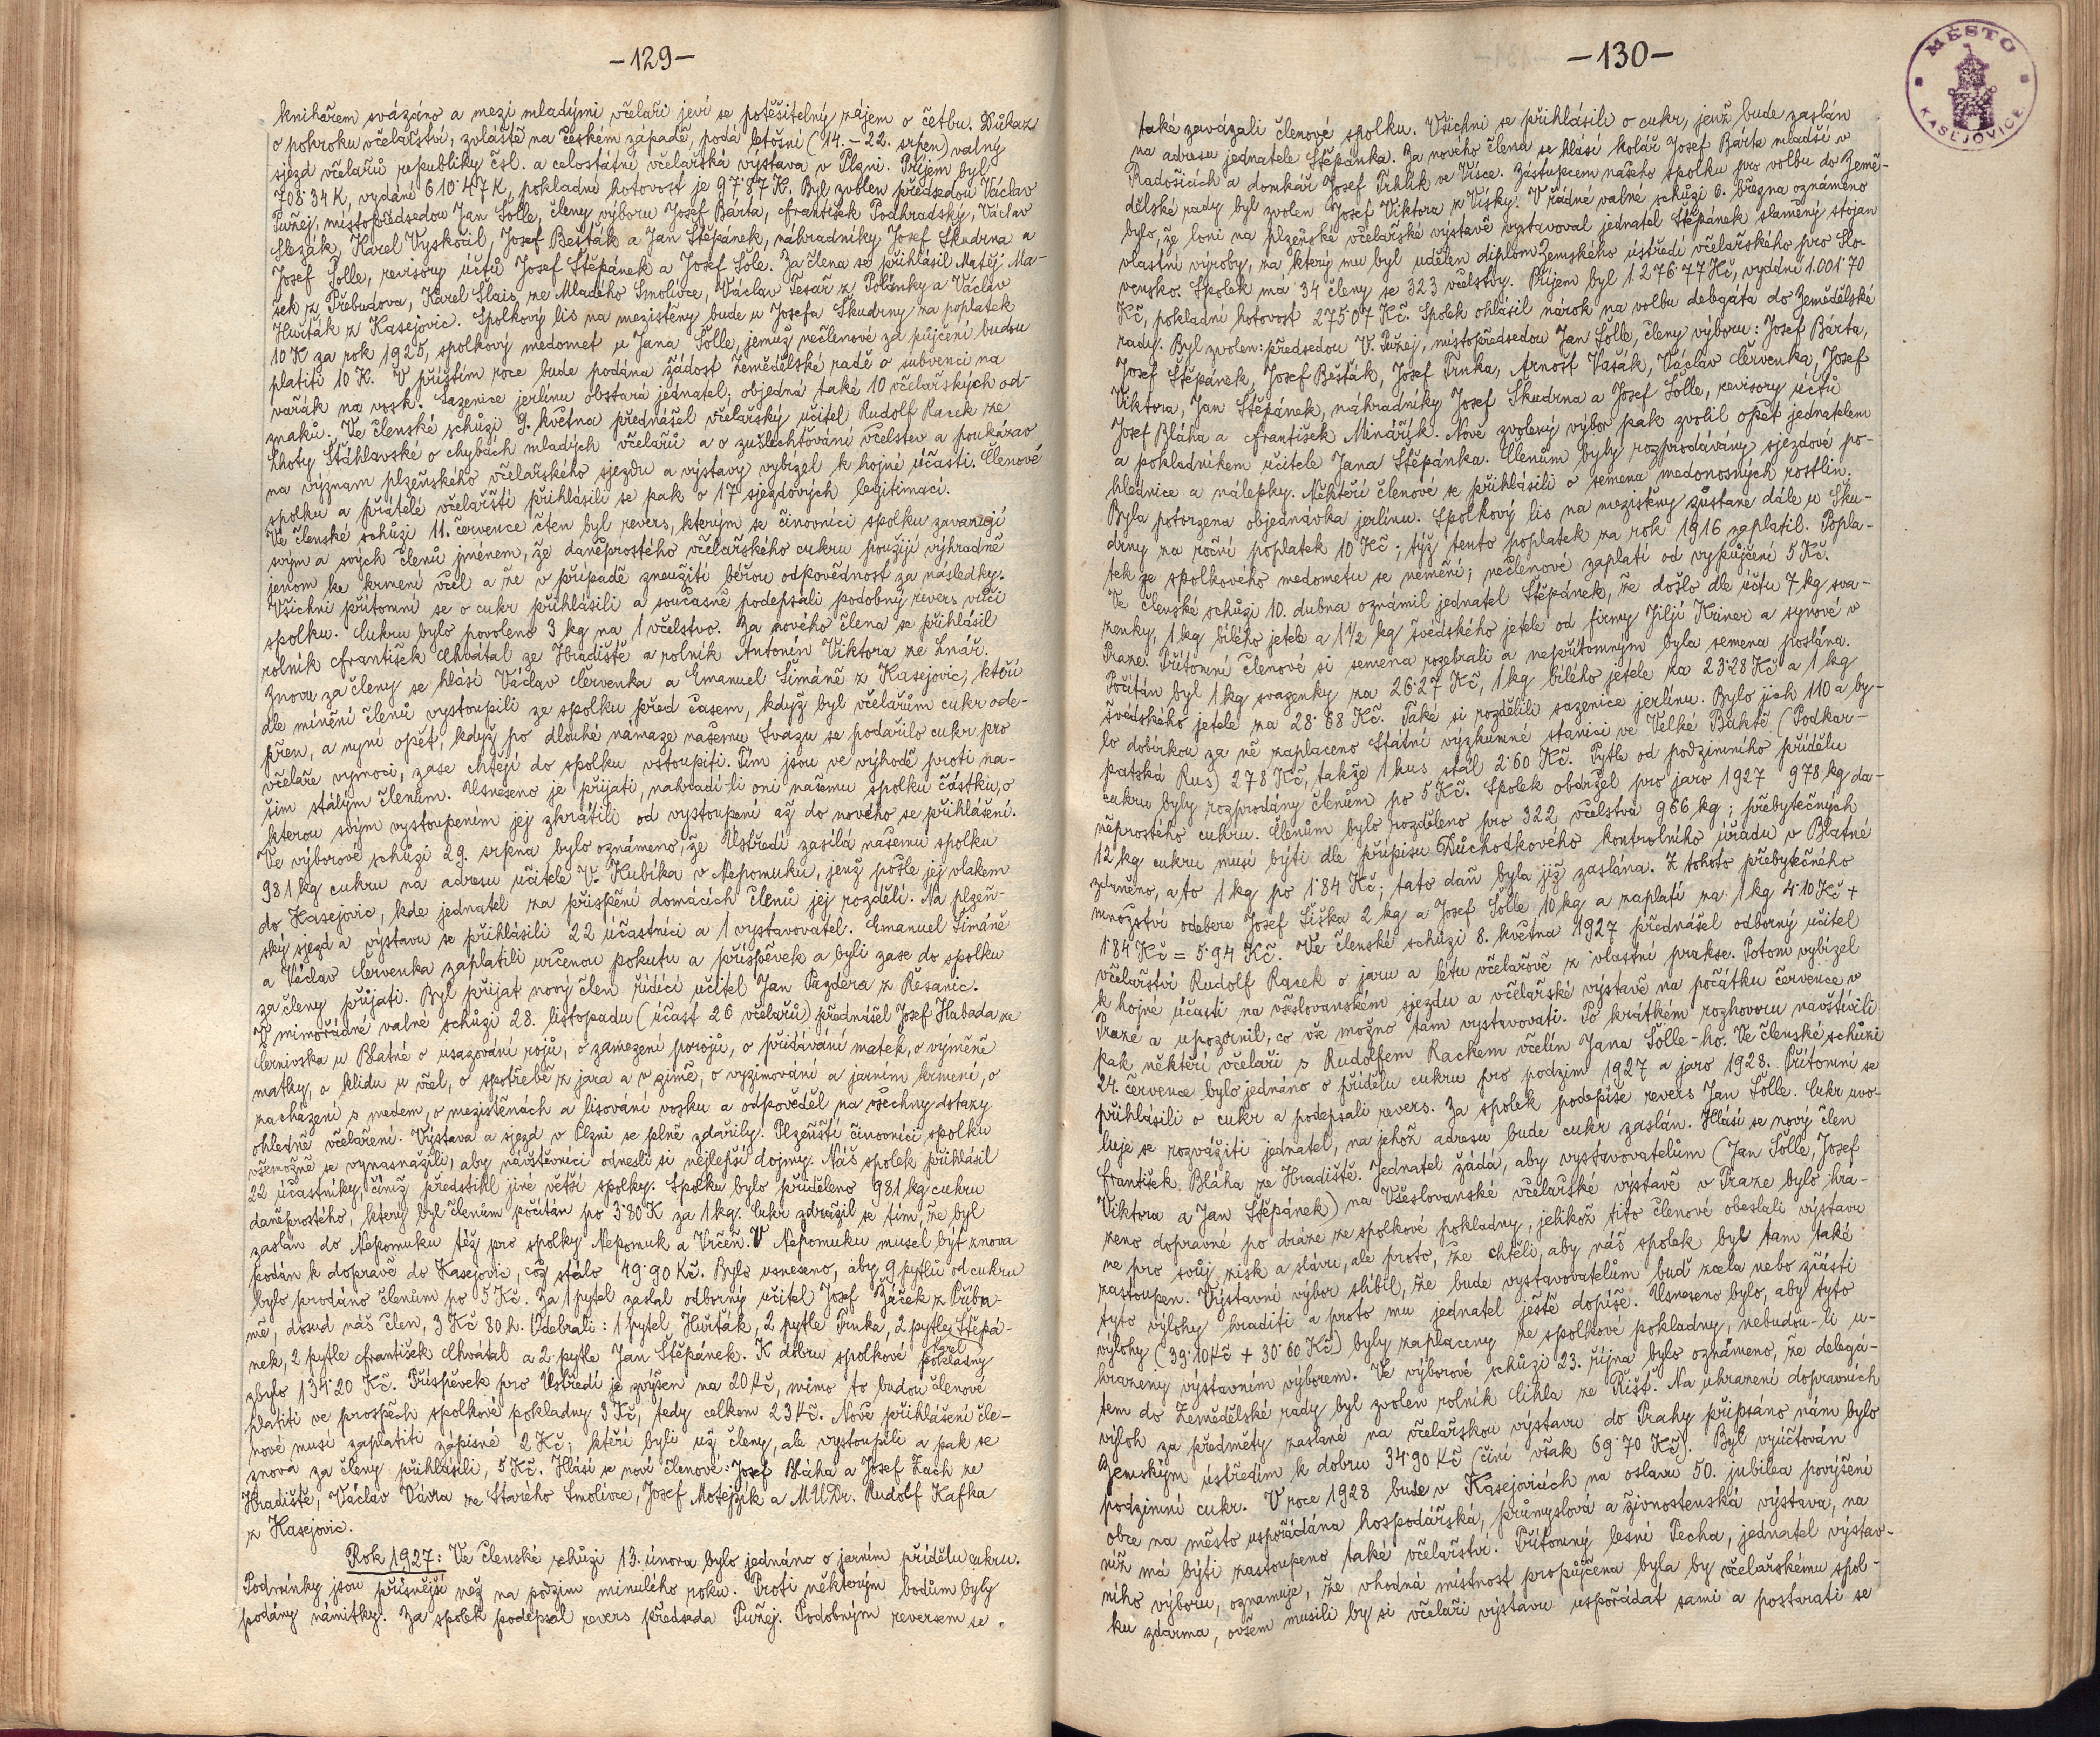 -129-
knihařem svázáno a mezi mladými včelaři jeví se potěšitelný zájem o četbu. Důkaz
o pokroku včelařství, zvláště na českém západě, podá letošní (14. – 22. srpen) valný
sjezd včelařů republiky čsl. a celostátní včelařská výstava v Plzni. Příjem byl
708·34 K, vydání 610·47 K, pokladní hotovost je 97·87 K. Byl zvolen předsedou Václav
Puřej, místopředsedou Jan Šólle, členy výboru Josef Bárta, František Podhradský, Václav
Slezák, Karel Vyskočil, Josef Bešták a Jan Štěpánek, náhradníky Josef Škudrna a
Josef Šolle, revisory účtů Josef Štěpánek a Josef Šóle. Za člena se přihlásil Matěj Ma-
šek z Přebudova, Karel Slais ze Mladého Smolivce, Václav Tesař z Polánky a Václav
Huřták z Kasejovic. Spolkový lis na mezistěny bude u Josefa Škudrny za poplatek
10 K za rok 1925, spolkový medomet u Jana Šólle, jemuž nečlenové za půjčení budou
platiti 10 K. V příštím roce bude podána žádost Zemědělské radě o subvenci na
vařák na vosk. Sazenice jerlínu obstará jednatel; objedná také 10 včelařských od-
znaků. Ve členské schůzi 9. května přednášel včelařský učitel Rudolf Racek ze
Lhoty Šťáhlavské o chybách mladých včelařů a o zušlechťování včelstev a poukázav
na význam plzeňského včelařského sjezdu a výstavy vybízel k hojné účasti. Členové
spolku a přátelé včelařští přihlásili se pak o 17 sjezdových legitimací.
Ve členské schůzi 11. července čten byl revers, kterým se činovníci spolku zavazují
svým a svých členů jménem, že daněprostého včelařského cukru použijí výhradně
jenom ke krmení včel a že v případě zneužití béřou odpovědnost za následky.
Všichni přítomní se o cukr přihlásili a současně podepsali podobný revers vůči
spolku. Cukru bylo povoleno 3 kg na 1 včelstvo. Za nového člena se přihlásil
rolník František Chvátal ze Hradiště a rolník Antonín Viktora ze Lnář.
Znovu za členy se hlásí Václav Červenka a Emanuel Šimáně z Kasejovic, kteří
dle mínění členů vystoupili ze spolku před časem, když byl včelařům cukr ode-
přen, a nyní opět, když po dlouhé námaze našemu Svazu se podařilo cukr pro
včelaře vymoci, zase chtějí do spolku vstoupiti. Tím jsou ve výhodě proti na-
šim stálým členům. Usneseno je přijati, nahradí-li oni našemu spolku částku, o
kterou svým vystoupením jej zkrátili od vystoupení až do nového se přihlášení.
Ve výborové schůzi 29. srpna bylo oznámeno, že Ústředí zasílá našemu spolku
981 kg cukru na adresu učitele V. Kubíka v Nepomuku, jenž pošle jej vlakem
do Kasejovic, kde jednatel za přispění domácích členů jej rozdělí. Na plzeň-
ský sjezd a výstavu se přihlásili 22 účastníci a 1 vystavovatel. Emanuel Šimáně
a Václav Červenka zaplatili určenou pokutu a příspěvek a byli zase do spolku
za členy přijati. Byl přijat nový člen řídící učitel Jan Pazdera z Řesanic.
V mimořádné valné schůzi 28. listopadu (účast 26 včelařů) přednášel Josef Habada ze
Černivska u Blatné o usazování rojů, o zamezení porojů, o přidávání matek, o výměně
matky, o klidu u včel, o spotřebě z jara a v zimě, o vyzimování a jarním krmení, o
zacházení s medem, o mezistěnách a lisování vosku a odpověděl na všechny dotazy
ohledně včelaření. Výstava a sjezd v Plzni se plně zdařily. Plzeňští činovníci spolku
všemožně se vynasnažili, aby návštěvníci odnesli si nejlepší dojmy. Náš spolek přihlásil
22 účastníky, čímž předstihl jiné větší spolky. Spolku bylo přiděleno 981 kg cukru
daněprostého, který byl členům počítán po 3·80 K za 1 kg. Cukr zdražil se tím, že byl
zaslán do Nepomuku též pro spolky Nepomuk a Vrčeň. V Nepomuku musel být znova
podán k dopravě do Kasejovic, což stálo 49·90 Kč. Bylo usneseno, aby 9 pytlů od cukru
bylo prodáno členům po 5 Kč. Za 1 pytel zaslal odborný učitel Josef Žáček z Příbra-
mě, dosud náš člen, 3 Kč 80 h. Odebrali: 1 pytel Huřták, 2 pytle Trnka, 2 pytle Karel Štěpá-
nek, 2 pytle František Chvátal a 2 pytle Jan Štěpánek. K dobru spolkové pokladny
zbylo 134·20 Kč. Příspěvek pro Ústředí je zvýšen na 20 Kč, mimo to budou členové
platiti ve prospěch spolkové pokladny 3 Kč, tedy celkem 23 Kč. Nově přihlášení čle-
nové musí zaplatiti zápisné 2 Kč; kteří byli už členy, ale vystoupili a pak se
znova za členy přihlásili, 5 Kč. Hlásí se noví členové: Josef Bláha a Josef Zach ze
Hradiště, Václav Vávra ze Starého Smolivce, Josef Motejzík a MUDr. Rudolf Kafka
z Kasejovic.
Rok 1927: Ve členské schůzi 13. února bylo jednáno o jarním přídělu cukru.
Podmínky jsou přísnější než na podzim minulého roku. Proti některým bodům byly
podány námitky. Za spolek podepsal revers předseda Puřej. Podobným reversem se
-130-
MĚSTO KASEJOVICE
také zavázali členové spolku. Všichni se přihlásili o cukr, jenž bude zaslán
na adresu jednatele Štěpánka. Za nového člena se hlásí kolář Josef Bárta mladší v
Radošicích a domkář Josef Pihlík ve Vísce. Zástupcem našeho spolku pro volbu do Země-
dělské rady byl zvolen Josef Viktora z Vísky. V řádné valné schůzi 6. března oznámeno
bylo, že loni na plzeňské včelařské výstavě vystavoval jednatel Štěpánek slaměný stojan
vlastní výroby, za který mu byl udělen diplom Zemského ústředí včelařského pro Slo-
vensko. Spolek má 34 členy se 323 včelstvy. Příjem byl 1.276·77 Kč, vydání 1.001·70
Kč, pokladní hotovost 275·07 Kč. Spolek ohlásil nárok na volbu delegáta do Zemědělské
rady. Byl zvolen: předsedou V. Puřej, místopředsedou Jan Šolle, členy výboru: Josef Bárta,
Josef Štěpánek, Josef Bešták, Josef Trnka, Arnošt Vašák, Václav Červenka, Josef
Viktora, Jan Štěpánek, náhradníky Josef Škudrna a Josef Šolle, revisory účtů
Josef Bláha a František Minářík. Nově zvolený výbor pak zvolil opět jednatelem
a pokladníkem učitele Jana Štěpánka. Členům byly rozprodávány sjezdové po-
hlednice a nálepky. Někteří členové se přihlásili o semena medonosných rostlin.
Byla potvrzena objednávka jerlínu. Spolkový lis na mezistěny zůstane dále u Šku-
drny za roční poplatek 10 Kč; týž tento poplatek za rok 1916 zaplatil. Popla-
tek ze spolkového medometu se nemění; nečlenové zaplatí od vypůjčení 5 Kč.
Ve členské schůzi 10. dubna oznámil jednatel Štěpánek, že došlo dle účtu 7 kg sva-
zenky, 1 kg bílého jetele a 1½ kg švédského jetele od firmy Jiljí Küner a synové v
Praze. Přítomní členové si semena rozebrali a nepřítomným byla semena poslána.
Počítán byl 1 kg svazenky za 26·27 Kč, 1 kg bílého jetele za 23·28 Kč a 1 kg
švédského jetele za 28·88 Kč. Také si rozdělili sazenice jerlínu. Bylo jich 110 a by-
lo dobírkou za ně zaplaceno Státní výzkumné stanici ve Velké Bahtě (Podkar-
patská Rus) 278 Kč, takže 1 kus stál 2·60 Kč. Pytle od podzimního přídělu
cukru byly rozprodány členům po 5 Kč. Spolek obdržel pro jaro 1927 978 kg da-
něprostého cukru. Členům bylo rozděleno pro 322 včelstva 966 kg; přebytečných
12 kg cukru musí býti dle přípisu Důchodkového kontrolního úřadu v Blatné
zdaněno, a to 1 kg po 1·84 Kč; tato daň byla již zaslána. Z tohoto přebytečného
množství odebere Josef Šiška 2 kg a Josef Šolle 10 kg a zaplatí za 1 kg 4·10 Kč +
1·84 Kč = 5·94 Kč. Ve členské schůzi 8. května 1927 přednášel odborný učitel
včelařství Rudolf Racek o jaru a létu včelařově z vlastní prakse. Potom vybízel
k hojné účasti na všeslovanském sjezdu a včelařské výstavě na počátku července v
Praze a upozornil, co vše možno tam vystavovati. Po krátkém rozhovoru navštívili
pak někteří včelaři s Rudolfem Rackem včelín Jana Šólle-ho. Ve členské schůzi
24. července bylo jednáno o přídělu cukru pro podzim 1927 a jaro 1928. Přítomní se
přihlásili o cukr a podepsali revers. Za spolek podepíše revers Jan Šólle. Cukr uvo-
luje se rozvážiti jednatel, na jehož adresu bude cukr zaslán. Hlásí se nový člen
František Bláha ze Hradiště. Jednatel žádá, aby vystavovatelům (Jan Šólle, Josef
Viktora a Jan Štěpánek) na Všeslovanské včelařské výstavě v Praze bylo hra-
zeno dopravné po dráze ze spolkové pokladny, jelikož tito členové obeslali výstavu
ne pro svůj zisk a slávu, ale proto, že chtěli, aby náš spolek byl tam také
zastoupen. Výstavní výbor slíbil, že bude vystavovatelům buď zcela nebo zčásti
tyto výlohy hraditi a proto mu jednatel ještě dopíše. Usneseno bylo, aby tyto
výlohy (39·10 Kč + 30·60 Kč) byly zaplaceny ze spolkové pokladny, nebudou-li u-
hrazeny výstavním výborem. Ve výborové schůzi 23. října bylo oznámeno, že delegá-
tem do Zemědělské rady byl zvolen rolník Cihla ze Řišť. Na uhrazení dopravních
výloh za předměty zaslané na včelařskou výstavu do Prahy připsáno nám bylo
Zemským ústředím k dobru 34·90 Kč (činí však 69·70 Kč). Byl vyúčtován
podzimní cukr. V roce 1928 bude v Kasejovicích na oslavu 50. jubilea povýšení
obce na město uspořádána hospodářská, průmyslová a živnostenská výstava, na
níž má býti zastoupeno také včelařství. Přítomný lesní Pecha, jednatel výstav-
ního výboru, oznamuje, že vhodná místnost propůjčena byla by včelařskému spol-
ku zdarma, ovšem musili by si včelaři výstavu uspořádat sami a postarati se